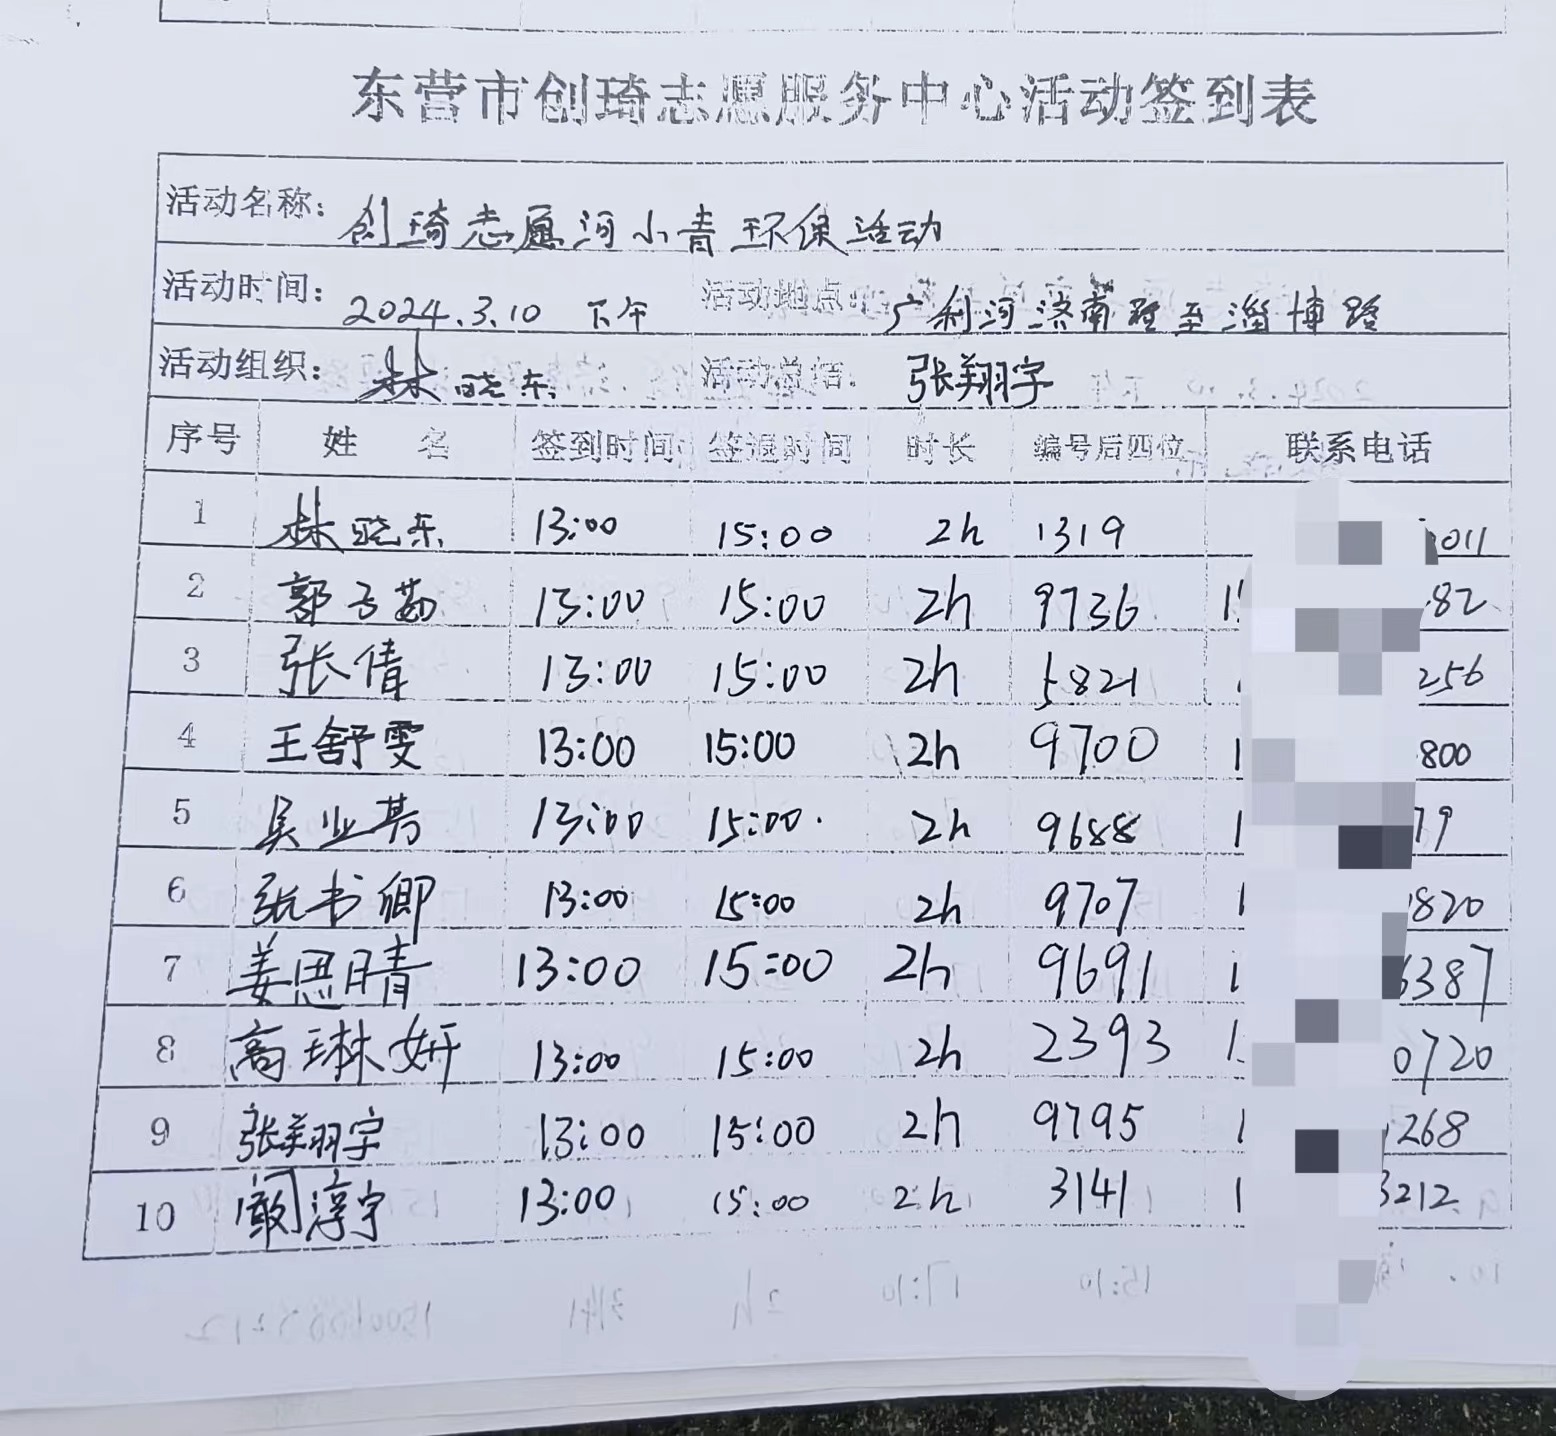 东营市创琦志愿服务中心活动签到表
活动名称: 创琦志愿河小青环保活动
活动时间: 2024.3.10 下午 活动地点: 广利河济南路至淄博路
活动组织: 林晓东 活动总结: 张翔宇
序号 姓名 签到时间 签退时间 时长 编号后四位 联系电话
1 林晓东 13:00 15:00 2h 1319 011
2 郭子茹 13:00 15:00 2h 9736 1 82
3 张倩 13:00 15:00 2h 5821 256
4 王舒雯 13:00 15:00 2h 9700 1 800
5 吴业 13:00 15:00 2h 9688 1 79
6 张书卿 13:00 15:00 2h 9707 1 820
7 姜思晴 13:00 15:00 2h 9691 1 6387
8 高琳妍 13:00 15:00 2h 2393 1 0720
9 张翔宇 13:00 15:00 2h 9795 1 268
10 阚淳宇 13:00 15:00 2h 3141 1 3212